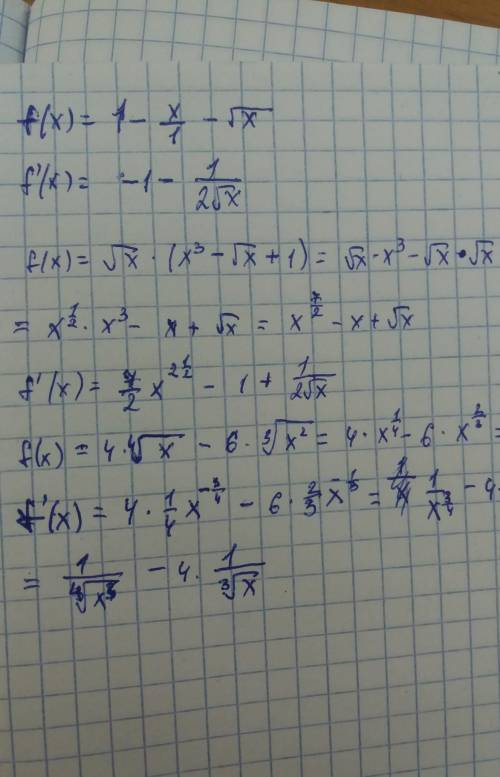 f(x) = 1 - x/1 - √x
f'(x) = -1 - 1/(2√x)
f(x) = √x · (x³ - √x + 1) = √x · x³ - √x · √x
= x^(1/2) · x³ - x + √x = x^(7/2) - x + √x
f'(x) = 7/2 x^(2 1/2) - 1 + 1/(2√x)
f(x) = 4 · ⁴√x - 6 · ³√x² = 4 · x^(1/4) - 6 · x^(2/3) =
f'(x) = 4 · 1/4 x^(-3/4) - 6 · 2/3 x^(-1/3) = 1/x^(3/4) - 4
= 1/⁴√x³ - 4 · 1/³√x